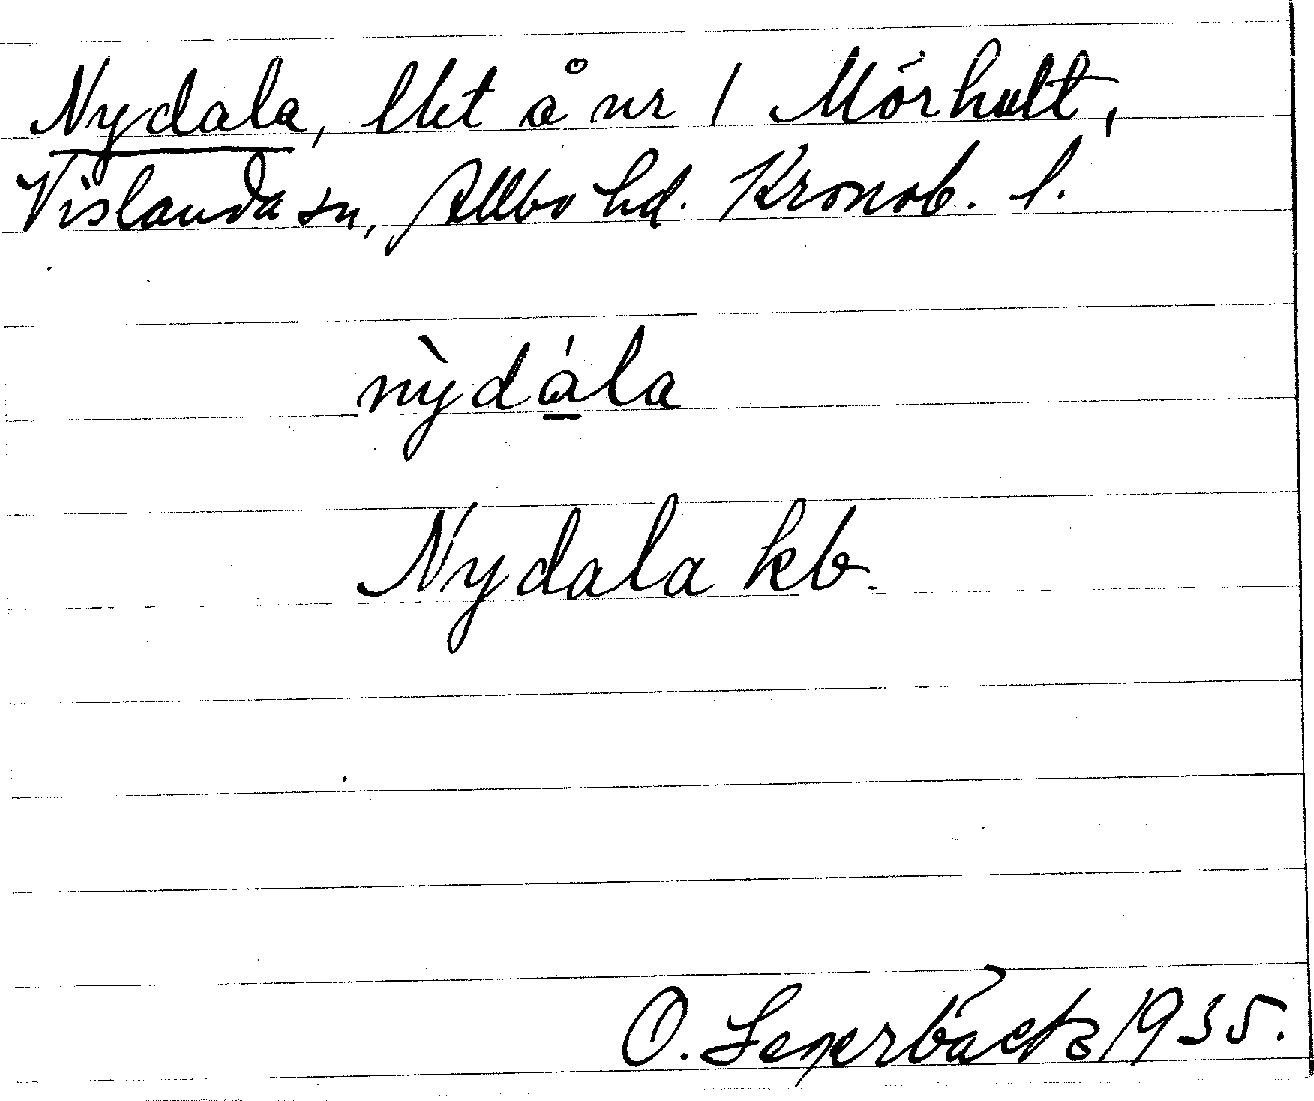 Nydala, lht å nr 1 Mörhult,
Vislanda sn, Allbo hd. Kronob. l.
nỳdála
Nydala kb.
O. 1935.